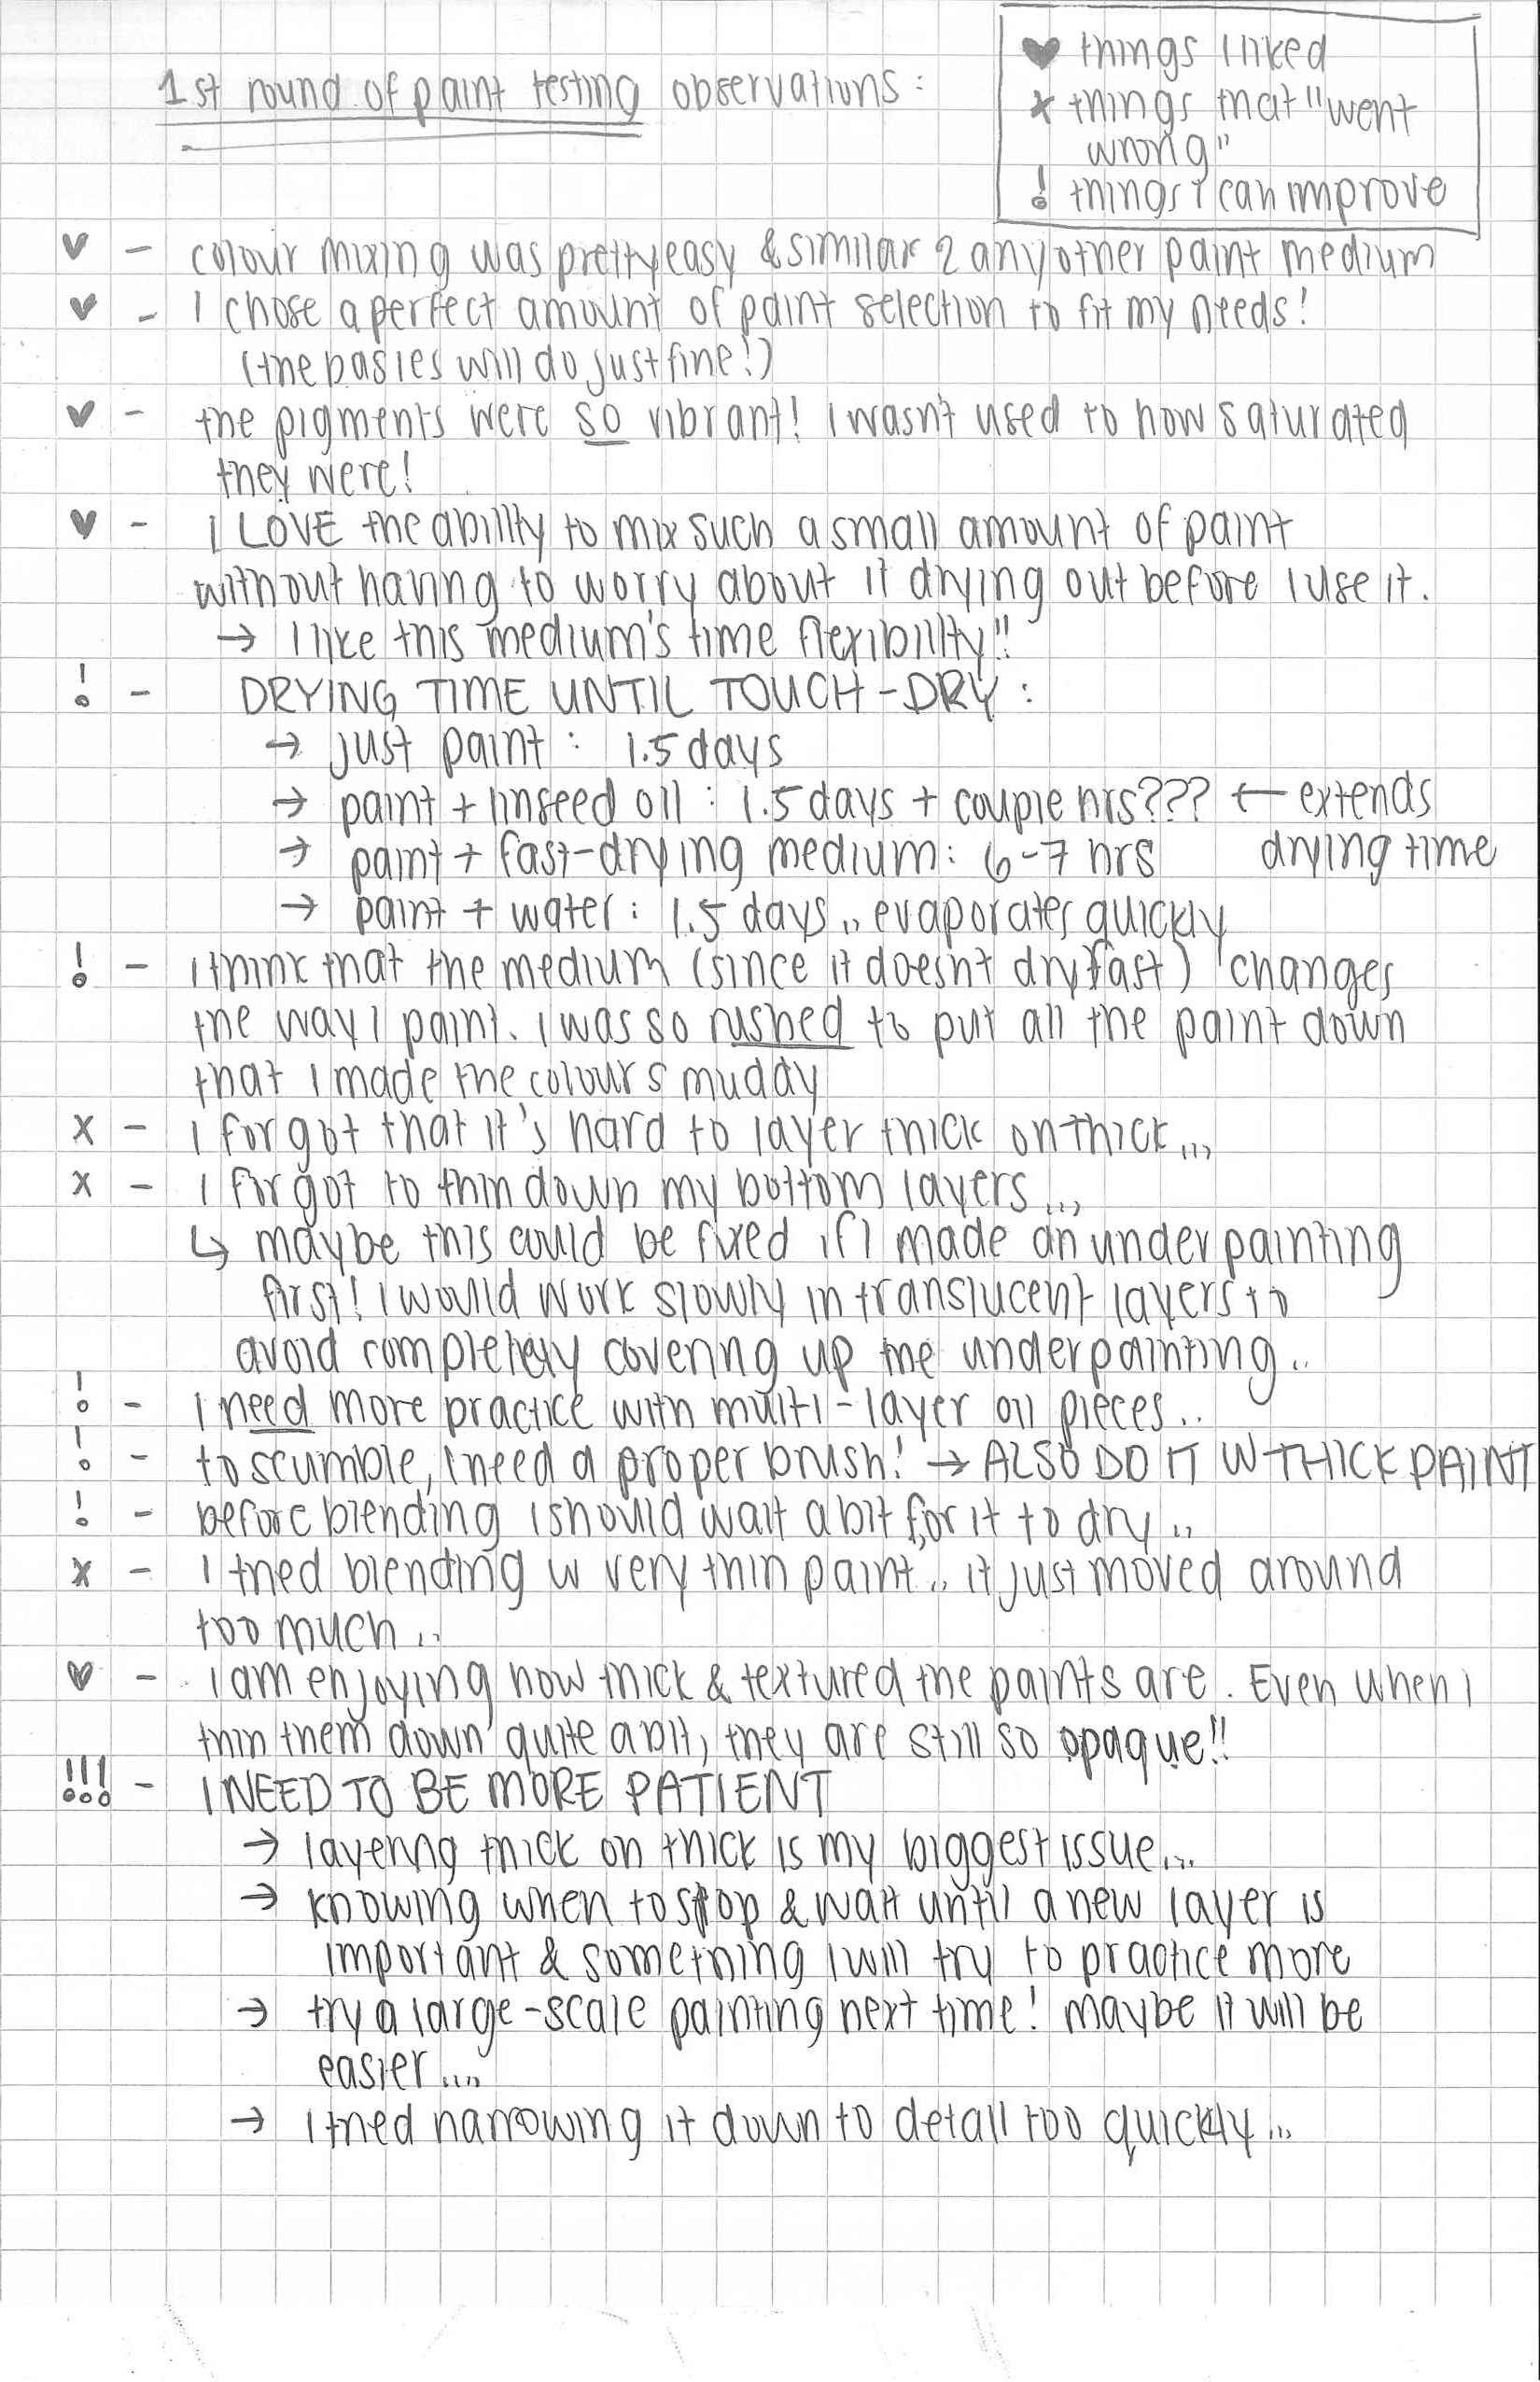 1st round of paint testing observations:
♥ things I liked
x things that "went
wrong"
! things I can improve
♥ - colour mixing was pretty easy & similar 2 any other paint medium
♥ - I chose a perfect amount of paint selection to fit my needs!
(the basics will do just fine!)
♥ - the pigments were so vibrant! I wasn't used to how saturated
they were!
♥ - I LOVE the ability to mix such a small amount of paint
without having to worry about it drying out before I use it.
→ I like this medium's time flexibility!!
! - DRYING TIME UNTIL TOUCH-DRY:
→ just paint: 1.5 days
→ paint + linseed oil: 1.5 days + couple hrs??? ← extends
→ paint + fast-drying medium: 6-7 hrs drying time
→ paint + water: 1.5 days.. evaporates quickly
! - I think that the medium (since it doesn't dry fast) changes
the way I paint. I was so rushed to put all the paint down
that I made the colours muddy
x - I forgot that it's hard to layer thick on thick...
x - I forgot to thin down my bottom layers...
↳ maybe this could be fixed if I made an underpainting
first! I would work slowly in translucent layers to
avoid completely covering up the underpainting..
! - I need more practice with multi-layer oil pieces..
! - to scumble, I need a proper brush! → ALSO DO IT W THICK PAINT
! - before blending I should wait a bit for it to dry..
x - I tried blending w very thin paint.. it just moved around
too much..
♥ - I am enjoying how thick & textured the paints are. Even when I
thin them down quite a bit, they are still so opaque!!
!!! - I NEED TO BE MORE PATIENT
→ layering thick on thick is my biggest issue...
→ knowing when to stop & wait until a new layer is
important & something I will try to practice more
→ try a large-scale painting next time! maybe it will be
easier....
→ I tried narrowing it down to detail too quickly...